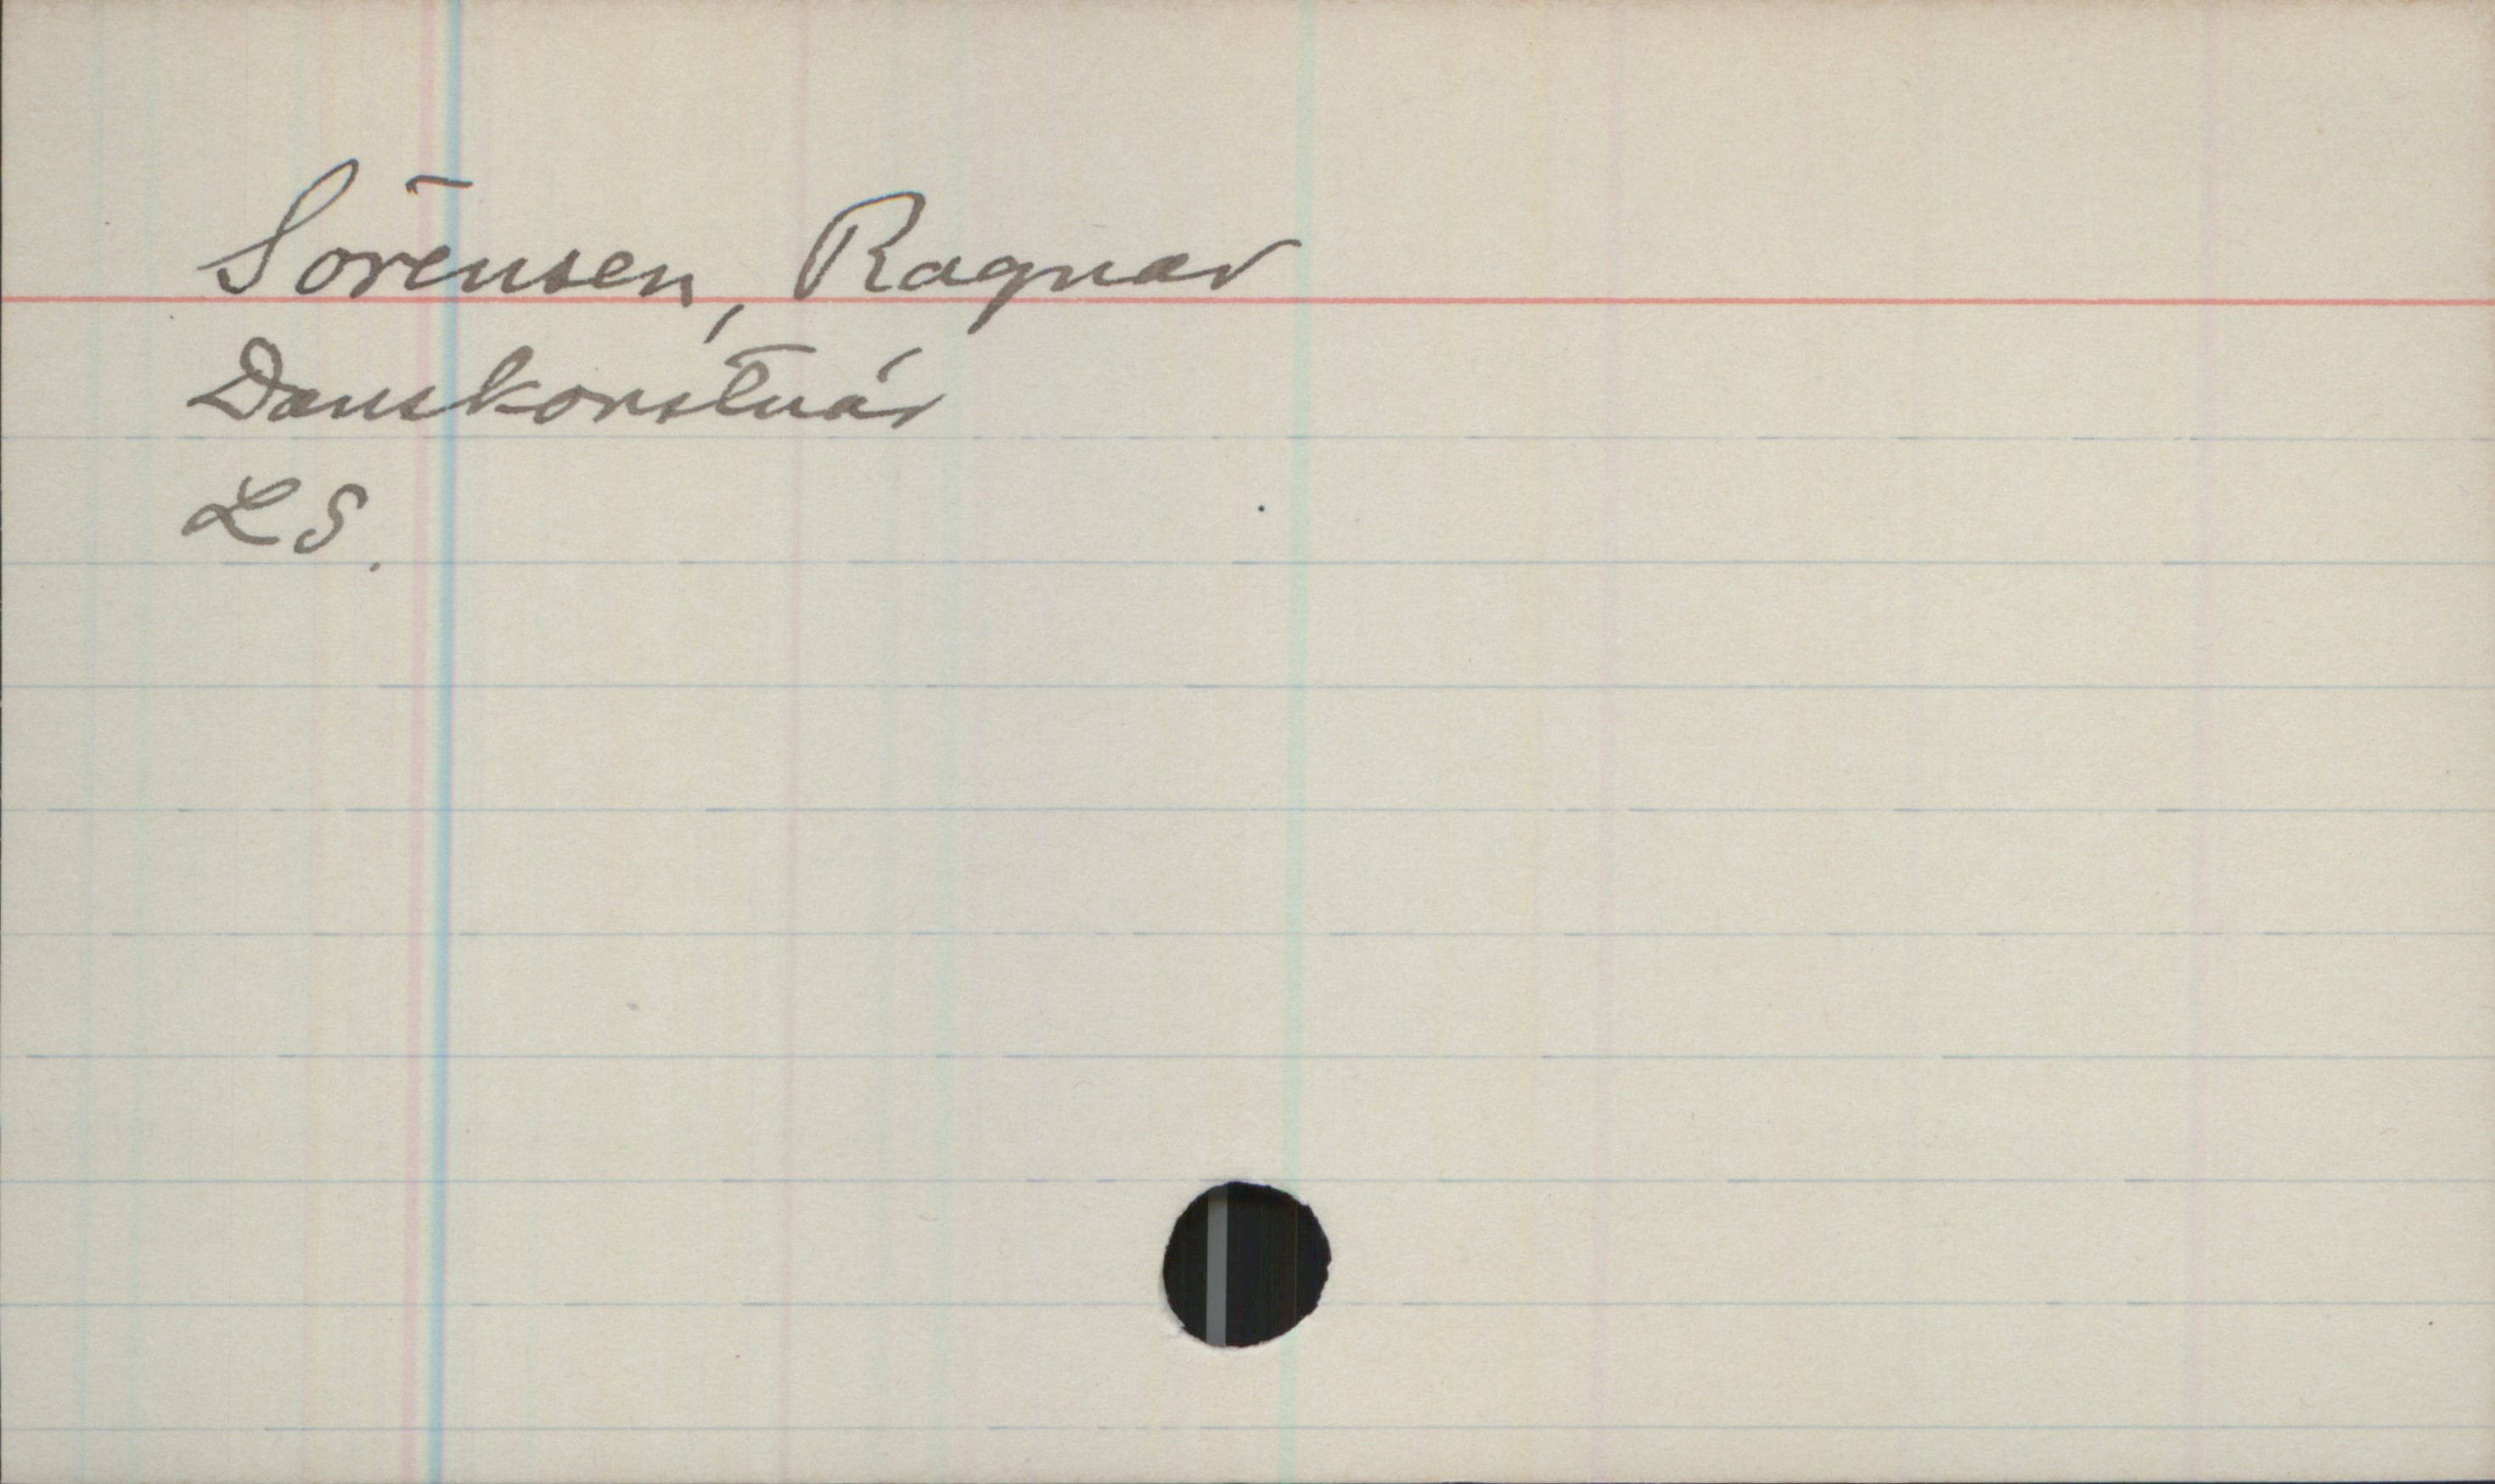 Sörensen, Ragnar
Danskonstnär
LS.